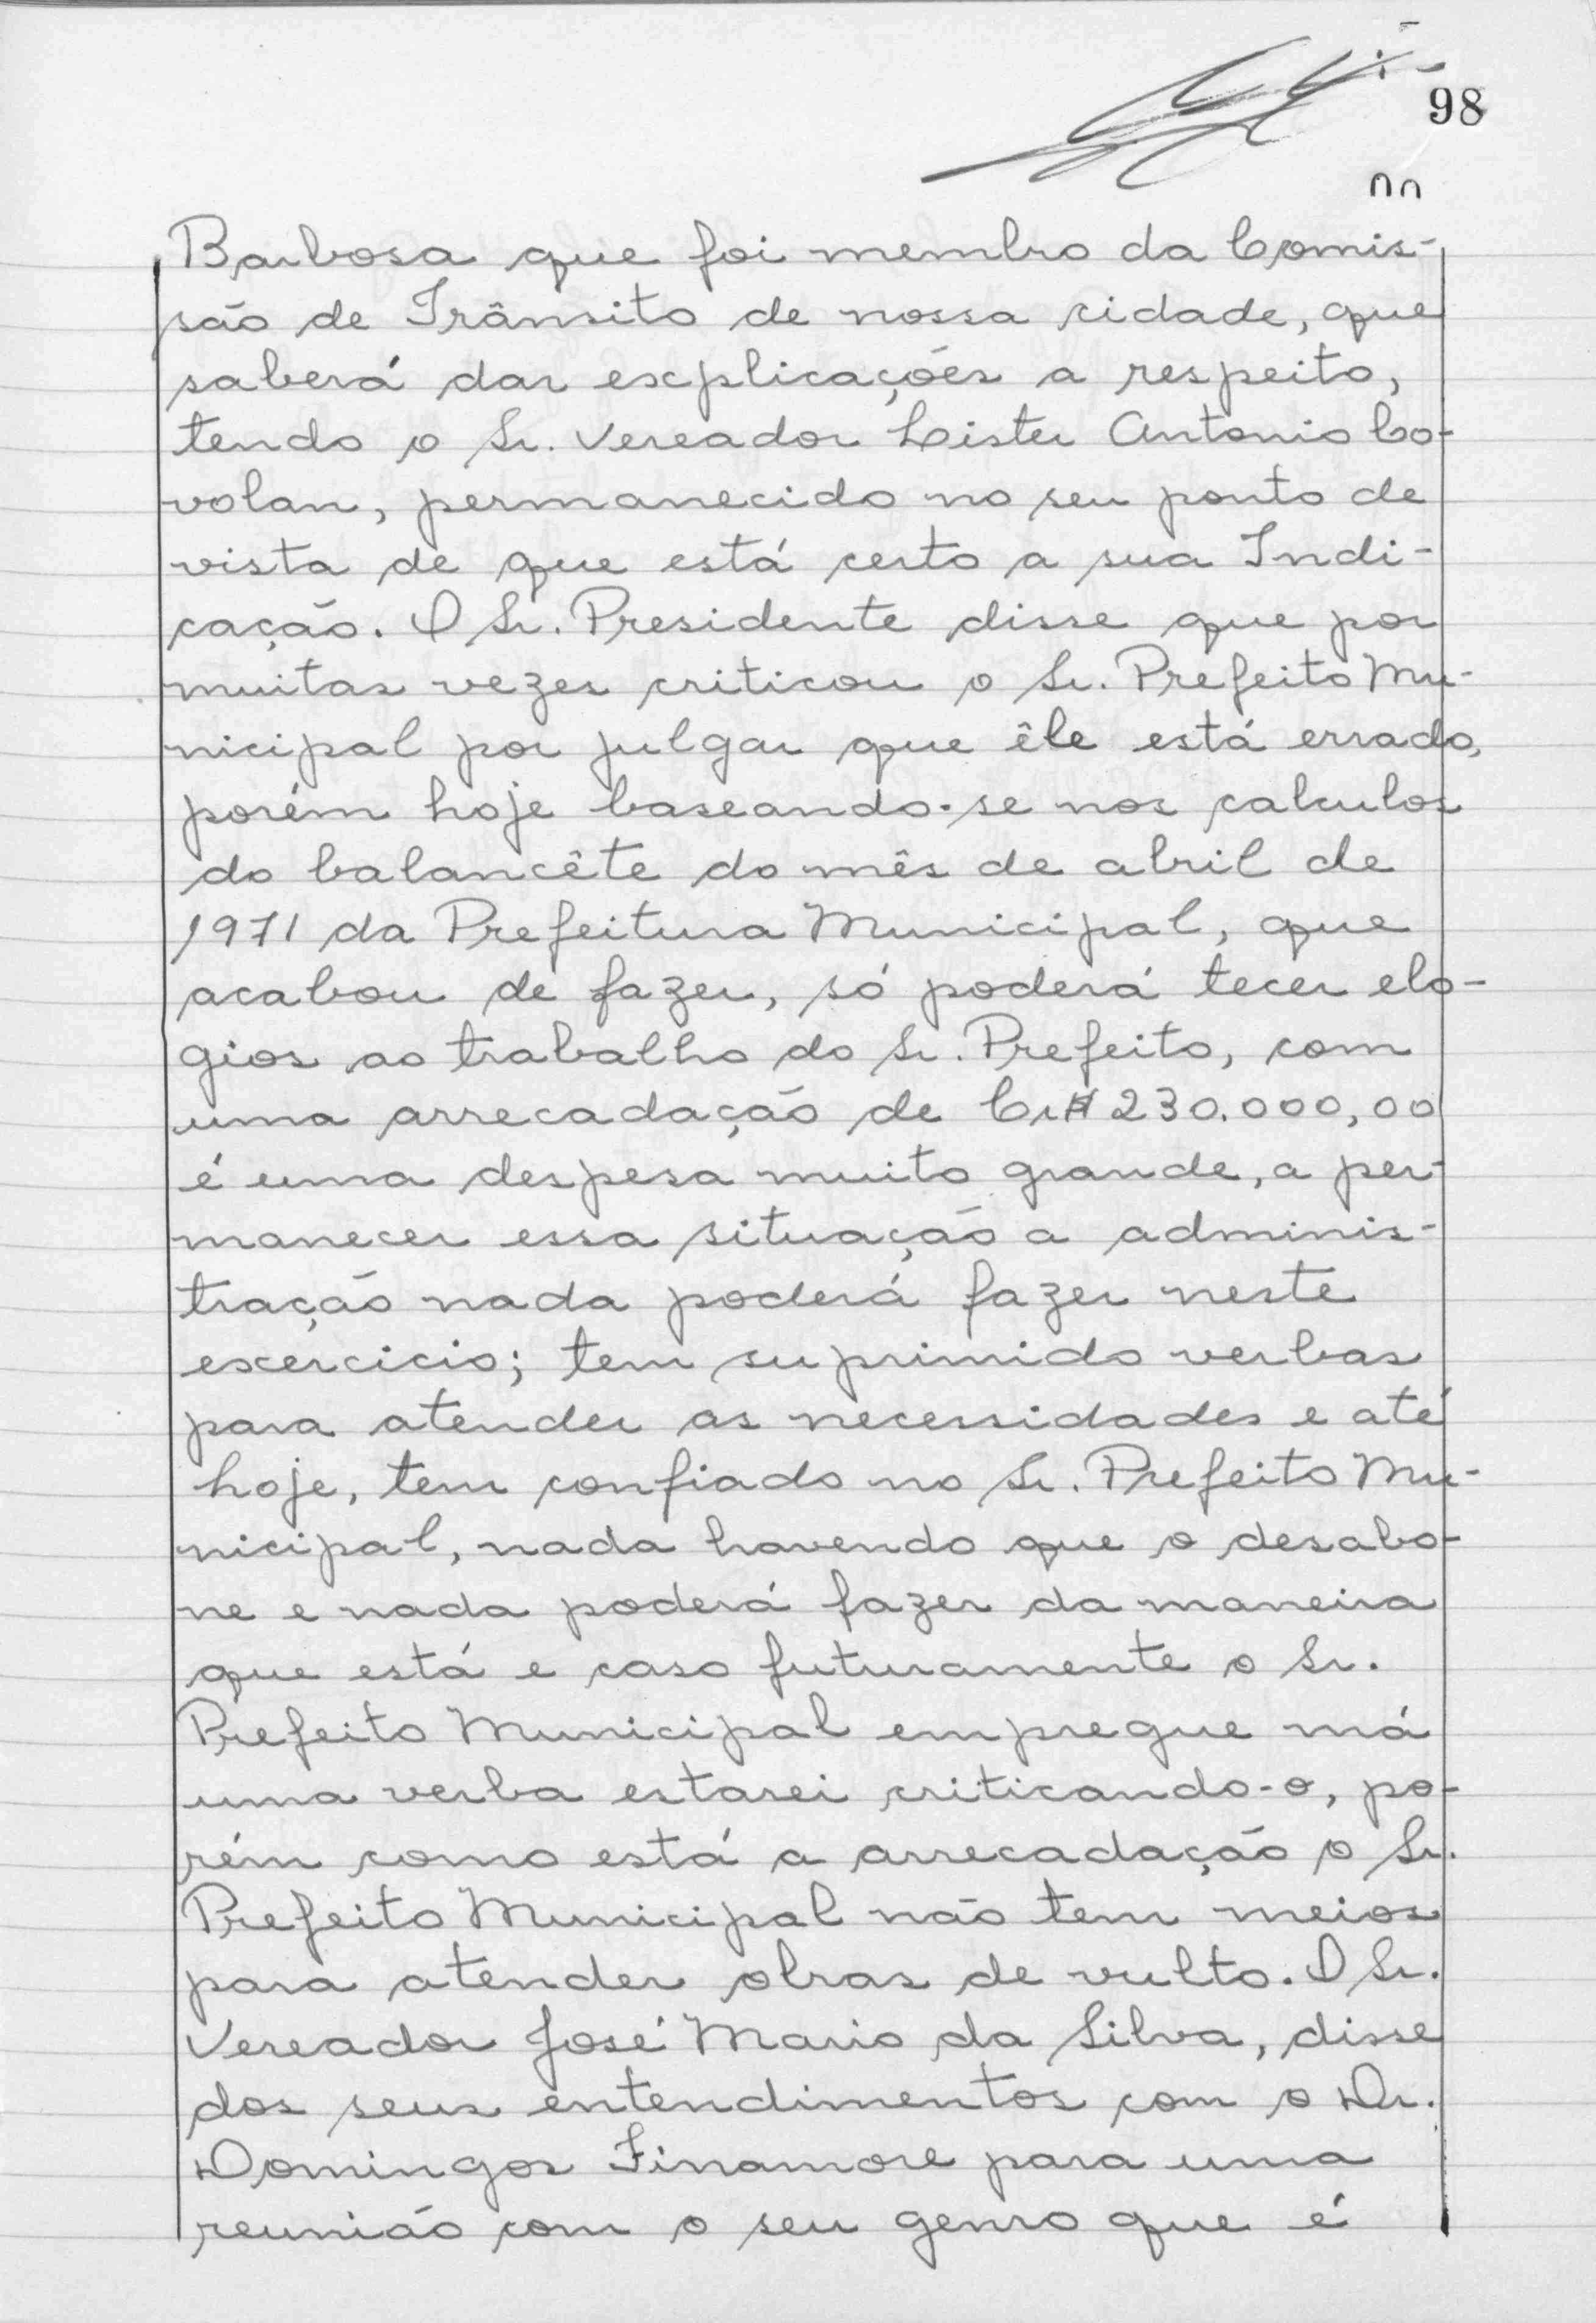 98
Barbosa que foi membro da Comis-
são de Trânsito de nossa cidade, que
saberá dar explicações a respeito,
tendo o Sr. Vereador Lister Antonio Co-
volan, permanecido no seu ponto de
vista de que está certo a sua Indi-
cação. O Sr. Presidente disse que por
muitas vezes criticou o Sr. Prefeito Mu-
nicipal por julgar que êle está errado,
porém hoje baseando-se nos calculos
do balancête do mês de abril de
1971 da Prefeitura Municipal, que
acabou de fazer, só poderá tecer elo-
gios ao trabalho do Sr. Prefeito, com
uma arrecadação de Cr$ 230.000,00
é uma despesa muito grande, a per-
manecer essa situação a adminis-
tração nada poderá fazer neste
exercicio; tem suprimido verbas
para atender as necessidades e até
hoje, tem confiado no Sr. Prefeito Mu-
nicipal, nada havendo que o desabo-
ne e nada poderá fazer da maneira
que está e caso futuramente o Sr.
Prefeito Municipal empregue má
uma verba estarei criticando-o, po-
rém como está a arrecadação o Sr.
Prefeito Municipal não tem meios
para atender obras de vulto. O Sr.
Vereador José Mario da Silva, disse
dos seus entendimentos com o Dr.
Domingos Finamore para uma
reunião com o seu genro que é